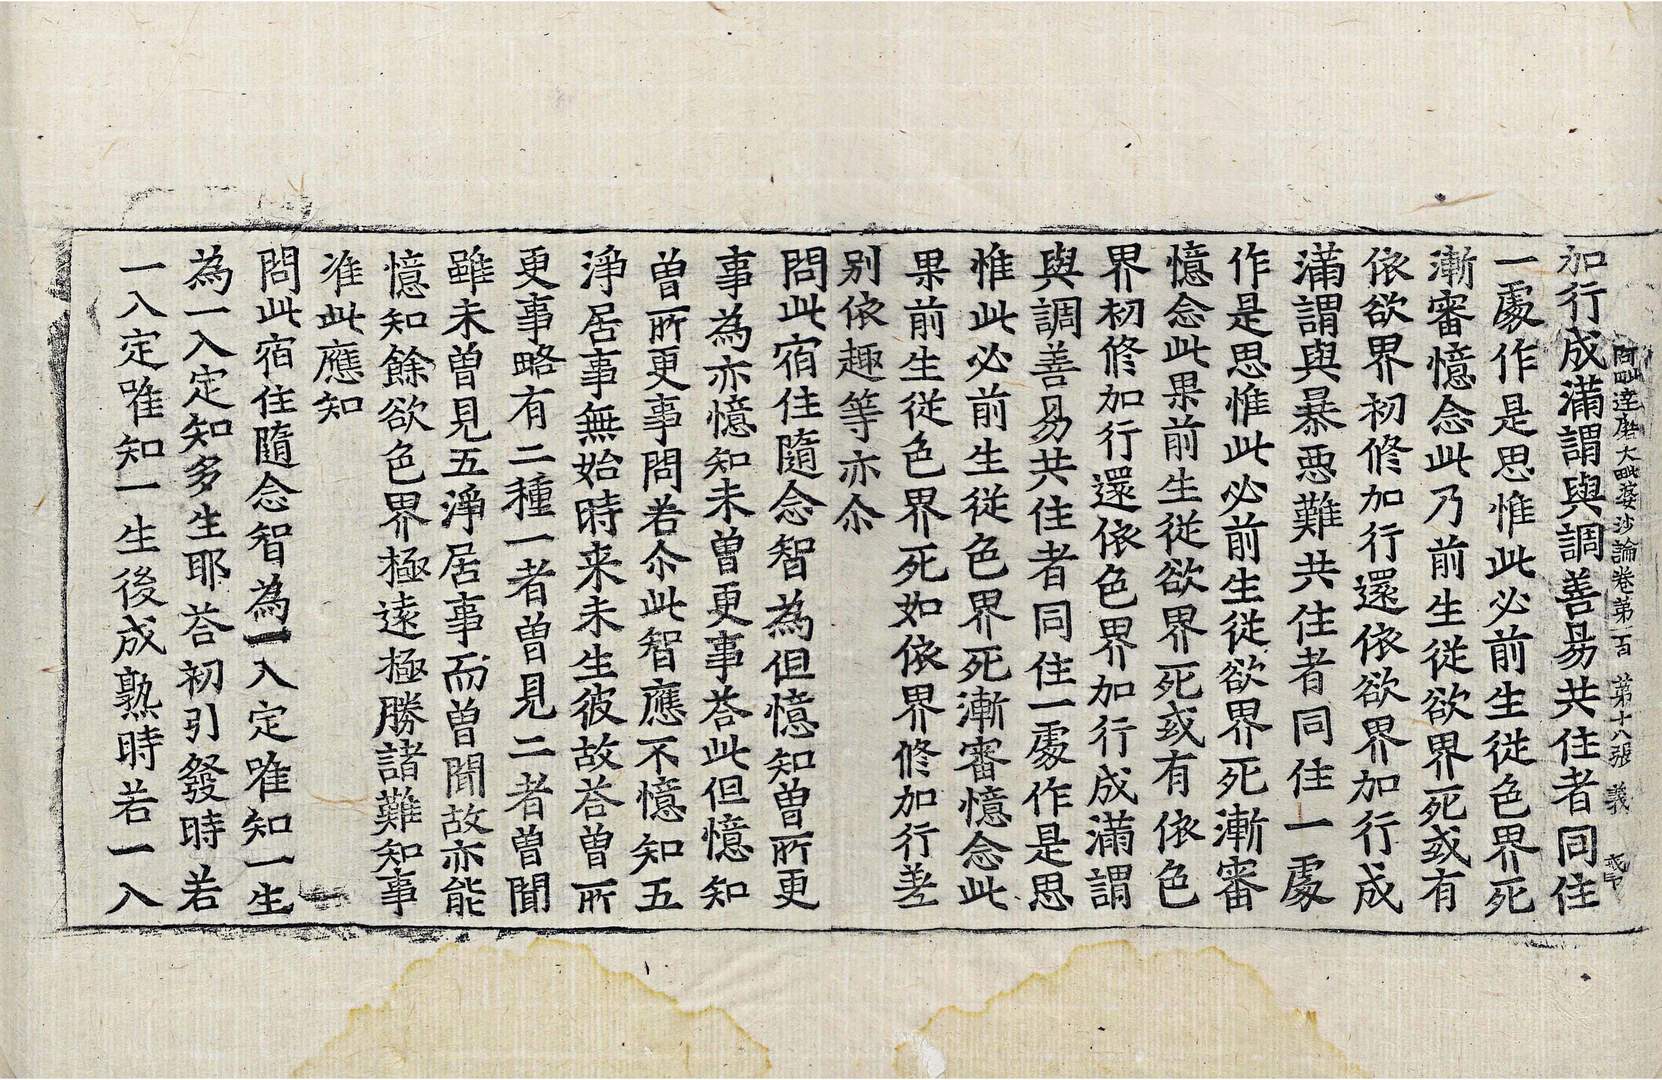 阿毗達磨大毗婆沙論卷第一百 第十八張 義
加行成滿謂與調善易共住者同住
一處作是思惟此必前生從色界死
漸審憶念此乃前生從欲界死或有
依欲界初修加行還依欲界加行成
滿謂與暴惡難共住者同住一處
作是思惟此必前生從欲界死漸審
憶念此果前生從欲界死或有依色
界初修加行還依色界加行成滿謂
與調善易共住者同住一處作是思
惟此必前生從色界死漸審憶念此
果前生從色界死如依界修加行差
別依趣等亦尒
問此宿住隨念智為但憶知曾所更
事為亦憶知未曾更事荅此但憶知
曾所更事問若尒此智應不憶知五
淨居事無始時来未生彼故荅曾所
更事略有二種一者曾見二者曾聞
雖未曾見五淨居事而曾聞故亦能
憶知餘欲色界極遠極勝諸難知事
准此應知
問此宿住隨念智為一入定唯知一生
為一入定知多生耶荅初引發時若
一入定唯知一生後成熟時若一入